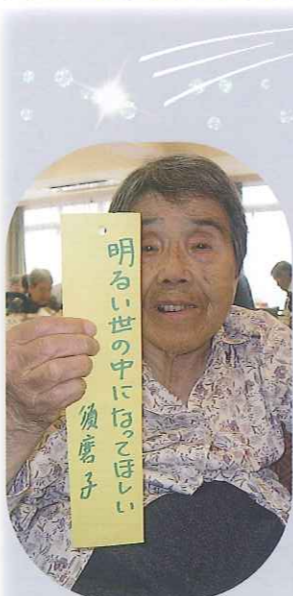 明るい世の中になってほしい
須磨子